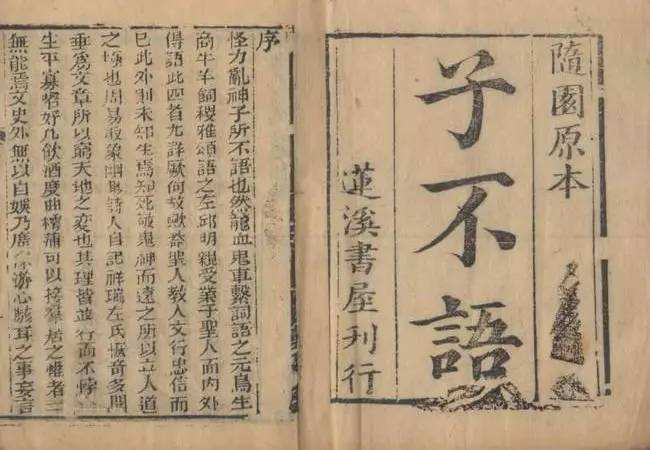 隨園原本
子不語
蓮溪書屋刊行
序
怪力亂神子所不語也然龍血鬼車繫詞語之元鳥生
商牛羊飼稷雅頌語之左邱明親受業于聖人而內外
傳語此四者尤詳厥何故歟蓋聖人教人文行忠信而
已此外則未知生焉知死敬鬼神而遠之所以立人道
之極也周易取象幽眇詩人自記祥瑞左氏恢奇多聞
垂為文章所以窮天地之変也其理皆並行而不悖
生平寡嗜好凡飲酒度曲樗蒲可以接羣居之懽者一
無能焉文史外無以自娛乃廣采游心駭耳之事妄言